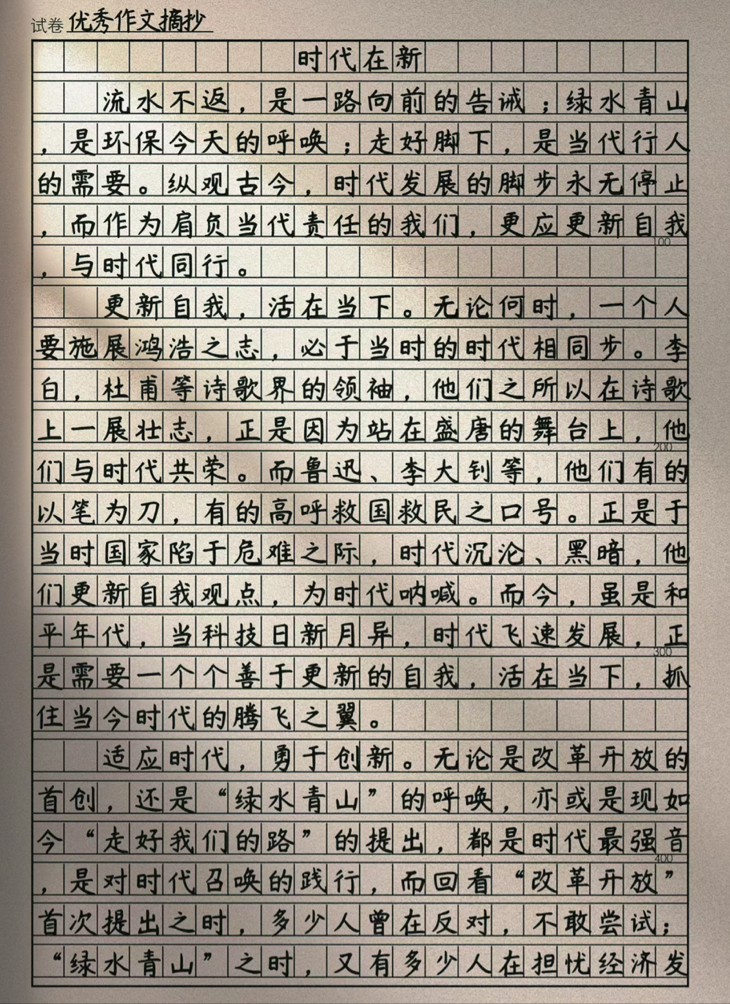 试卷 优秀作文摘抄
时代在新
流水不返，是一路向前的告诫；绿水青山
，是环保今天的呼唤；走好脚下，是当代行人
的需要。纵观古今，时代发展的脚步永无停止
，而作为肩负当代责任的我们，更应更新自我
100
，与时代同行。
更新自我，活在当下。无论何时，一个人
要施展鸿浩之志，必于当时的时代相同步。李
白，杜甫等诗歌界的领袖，他们之所以在诗歌
上一展壮志，正是因为站在盛唐的舞台上，他
200
们与时代共荣。而鲁迅、李大钊等，他们有的
以笔为刀，有的高呼救国救民之口号。正是于
当时国家陷于危难之际，时代沉沦、黑暗，他
们更新自我观点，为时代呐喊。而今，虽是和
平年代，当科技日新月异，时代飞速发展，正
300
是需要一个个善于更新的自我，活在当下，抓
住当今时代的腾飞之翼。
适应时代，勇于创新。无论是改革开放的
首创，还是“绿水青山”的呼唤，亦或是现如
今“走好我们的路”的提出，都是时代最强音
400
，是对时代召唤的践行，而回看“改革开放”
首次提出之时，多少人曾在反对，不敢尝试；
“绿水青山”之时，又有多少人在担忧经济发